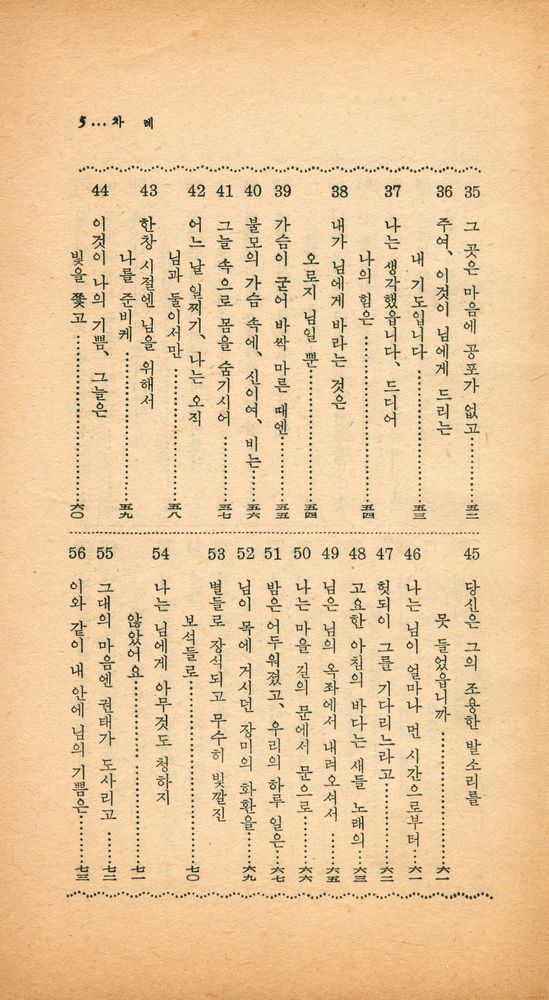 5…차 례
35 그 곳은 마음에 공포가 없고……五二
36 주여, 이것이 님에게 드리는
내 기도입니다……五三
37 나는 생각했읍니다, 드디어
나의 힘은……五四
38 내가 님에게 바라는 것은
오로지 님일 뿐……五四
39 가슴이 굳어 바싹 마른 때엔……五五
40 불모의 가슴 속에, 신이여, 비는……五六
41 그늘 속으로 몸을 숨기시어……五七
42 어느 날 일찌기, 나는 오직
님과 둘이서만……五八
43 한창 시절엔 님을 위해서
나를 준비케……五九
44 이것이 나의 기쁨, 그늘은
빛을 쫓고……六〇
45 당신은 그의 조용한 발소리를
못 들었읍니까……六一
46 나는 님이 얼마나 먼 시간으로부터……六一
47 헛되이 그를 기다리느라고……六二
48 고요한 아침의 바다는 새들 노래의……六三
49 님은 님의 옥좌에서 내려오셔서……六五
50 나는 마을 길의 문에서 문으로……六六
51 밤은 어두워졌고, 우리의 하루 일은……六七
52 님이 목에 거시던 장미의 화환을……六九
53 별들로 장식되고 무수히 빛깔진
보석들로……七〇
54 나는 님에게 아무것도 청하지
않았어요……七一
55 그대의 마음엔 권태가 도사리고……七二
56 이와 같이 내 안에 님의 기쁨은……七三